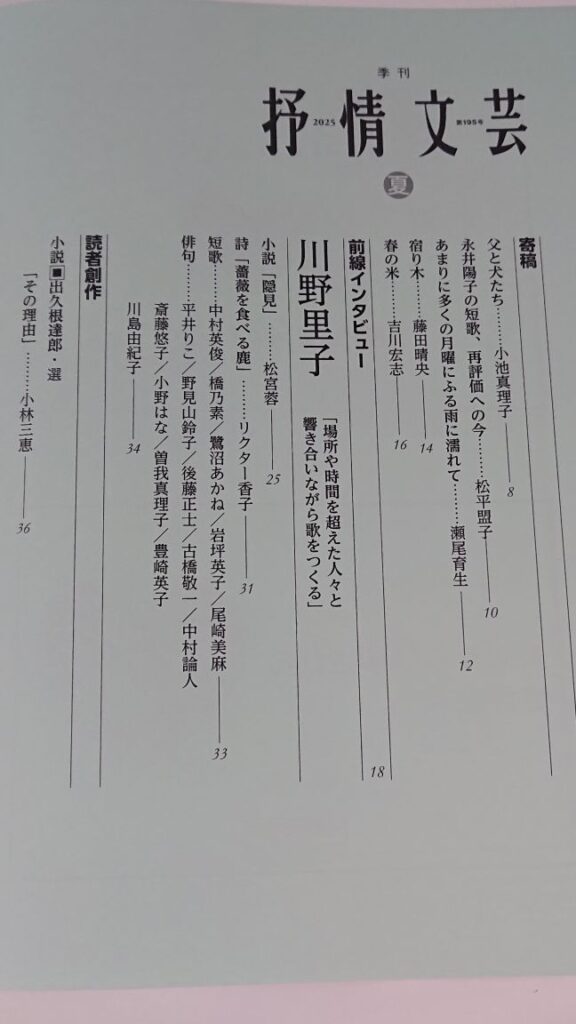 季刊
抒情文芸
2025
第195号
夏
寄稿
父と犬たち………小池真理子――8
永井陽子の短歌、再評価への今………松平盟子――10
あまりに多くの月曜にふる雨に濡れて………瀬尾育生――12
宿り木………藤田晴央――14
春の米………吉川宏志――16
前線インタビュー――18
川野里子
「場所や時間を超えた人々と
響き合いながら歌をつくる」
小説「隠見」………松宮蓉――25
詩「薔薇を食べる鹿」………リクター香子――31
短歌………中村英俊／橋乃素／鷺沼あかね／岩坪英子／尾崎美麻――33
俳句………平井りこ／野見山鈴子／後藤正士／古橋敬一／中村論人
斎藤悠子／小野はな／曽我真理子／豊崎英子
川島由紀子――34
読者創作
小説■出久根達郎・選
「その理由」………小林三恵――36